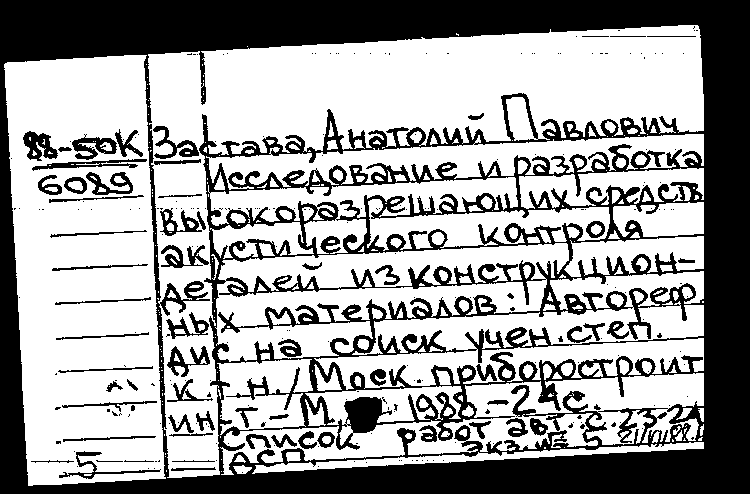 88-50К Застава, Анатолий Павлович
6089 Исследование и разработка
высокоразрешающих средств
акустического контроля
деталей из конструкцион-
ных материалов: Автореф.
дис. на соиск. учен. степ.
к.т.н. / Моск. приборостроит
ин-т. - М, 1988. - 24с.
Список работ авт. с. 23-24
дсп. экз. № 5
5